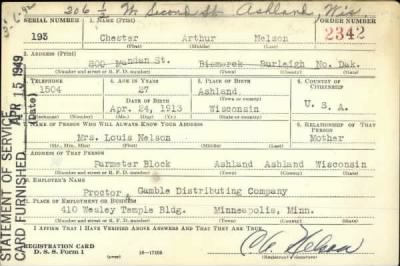 206 ½ W. Second St Ashland, Wis
SERIAL NUMBER 1. NAME (Print) ORDER NUMBER
193 Chester Arthur Nelson 2342
(First) (Middle) (Last)
2. ADDRESS (Print)
800 Mandan St. Bismarck Burleigh No. Dak.
3. TELEPHONE 4. AGE IN YEARS 5. PLACE OF BIRTH 6. COUNTRY OF CITIZENSHIP
1504 27 Ashland,
DATE OF BIRTH (Town or county)
Apr. 24, 1913 Winconsin U. S. A.
(Mo.) (Day) (Yr.) (State or country)
7. NAME OF PERSON WHO WILL ALWAYS KNOW YOUR ADDRESS 8. RELATIONSHIP OF THAT PERSON
Mrs. Louis Nelson Mother
(Mr., Mrs., Miss) (First) (Middle) (Last)
9. ADDRESS OF THAT PERSON
Parmeter Block Ashland Ashland Wisconsin
(Number and street or R. F. D. number) (Town) (County) (State)
10. EMPLOYER'S NAME
Proctor & Gamble Distributing Company
11. PLACE OF EMPLOYMENT OR BUSINESS
410 Wesley Temple Bldg. Minneapolis, Minn.
(Number and street or R. F. D. number) (Town) (County) (State)
I AFFIRM THAT I HAVE VERIFIED ABOVE ANSWERS AND THAT THEY ARE TRUE.
REGISTRATION CARD
D. S. S. Form 1 16—17105 C A Nelson
(Registrant's signature)
STATEMENT OF SERVICE
CARD FURNISHED APR 15 1949
(Date)